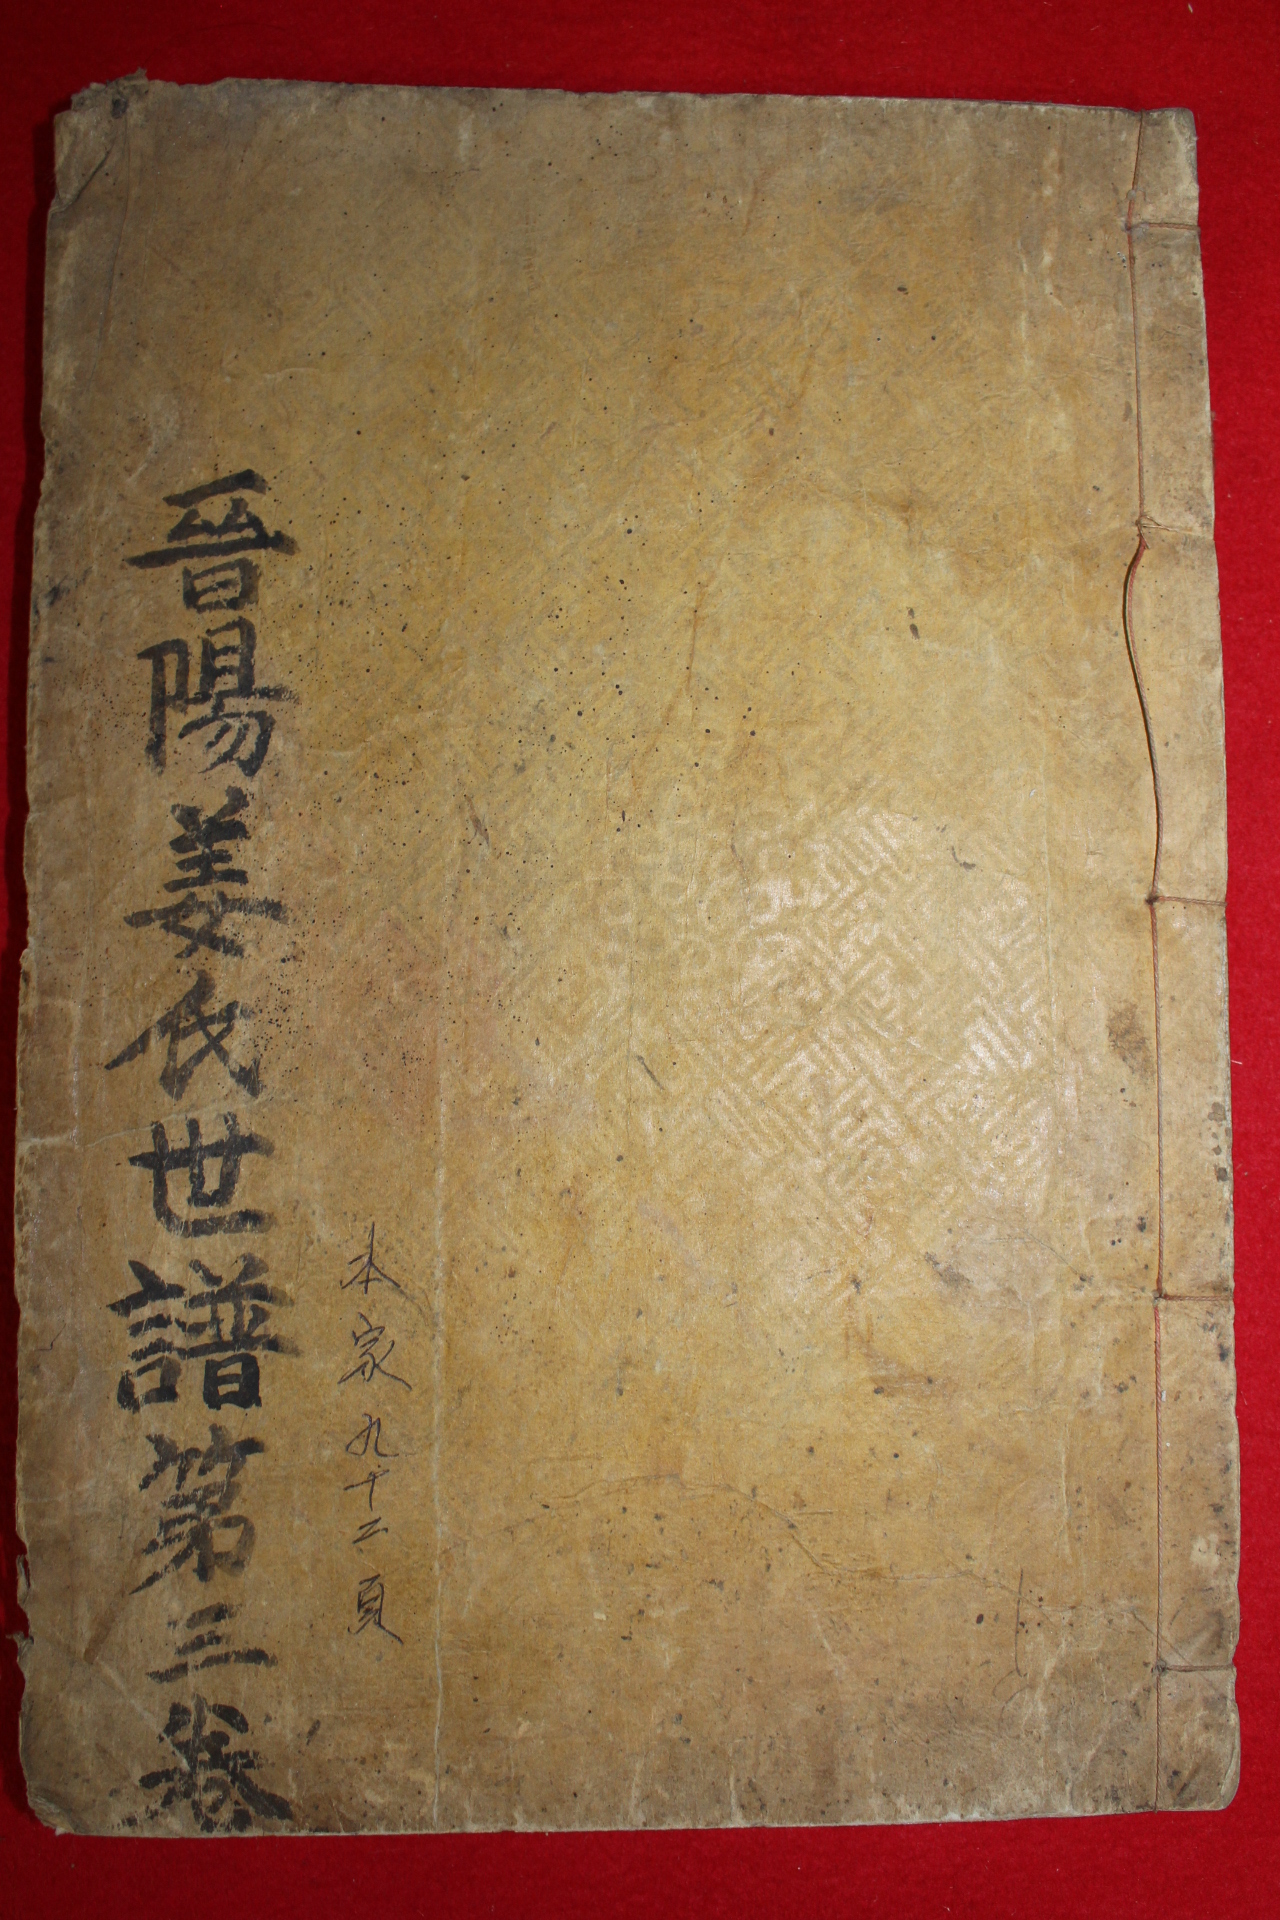 晉陽姜氏世譜第三卷
本家九十二頁